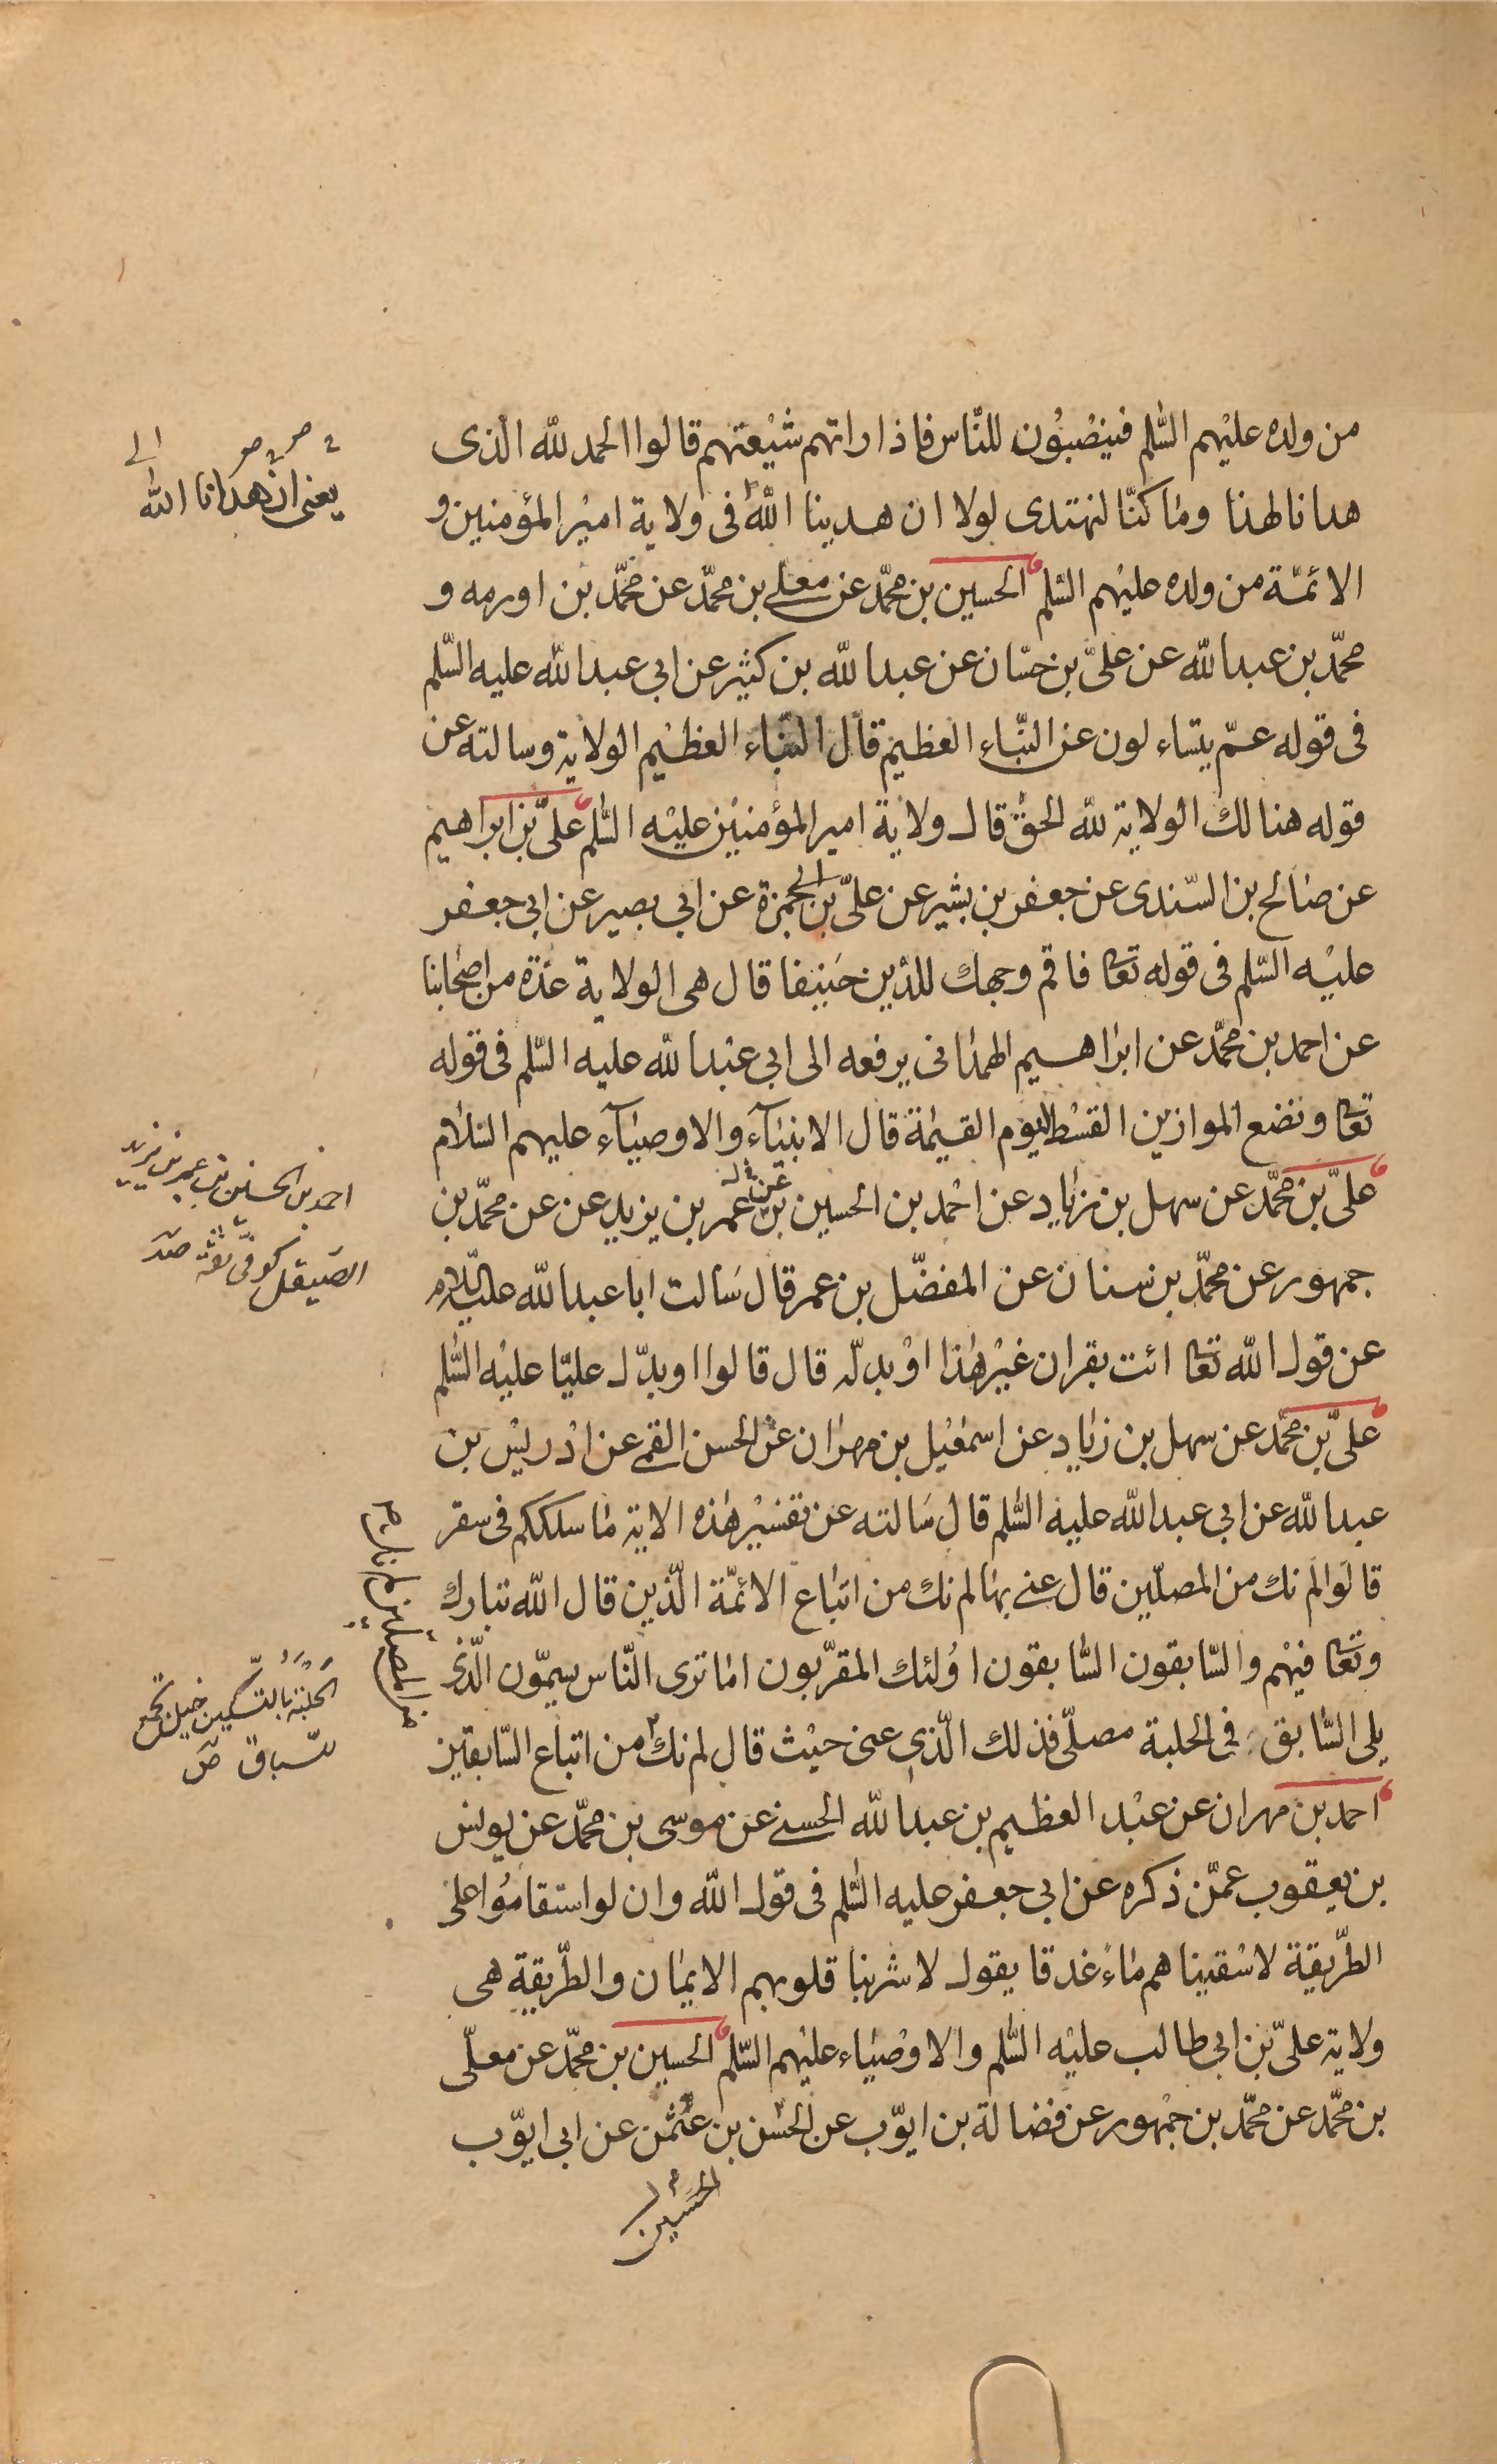 من ولده عليهم السّلم فينصبون للنّاس فاذا راتهم شيعتهم قالوا الحمد لله الّذى
هدانا لهذا وما كنّا لنهتدى لولا ان هدينا اللّه فى ولاية امير المؤمنين و
الائمّة من ولده عليهم السّلم الحسين بن محمّد عن معلى بن محمّد عن محمّد بن اورمه و
محمّد بن عبد الله عن علىّ بن حسّان عن عبد الله بن كثير عن ابي عبد الله عليه السّلم
فى قوله عمّ يتساءلون عن النّباء العظيم قال النّباء العظيم الولاية وسالته عن
قوله هنالك الولاية لله الحقّ قال ولاية امير المؤمنين عليه السّلم علىّ بن ابراهيم
عن صالح بن السّندى عن جعفر بن بشير عن علىّ بن ابى حمزة عن ابي بصير عن ابي جعفر
عليه السّلم فى قوله تعا فاقم وجهك للدّين حنيفا قال هى الولاية عدّة من اصحابنا
عن احمد بن محمّد عن ابراهيم الهمدانى يرفعه الى ابي عبد الله عليه السّلم فى قوله
تعا ونضع الموازين القسط ليوم القيمة قال الانبيآء والاوصيآء عليهم السّلام
علىّ بن محمّد عن سهل بن زياد عن احمد بن الحسين بن عمر بن يزيد عن عن محمّد بن
عن
جمهور عن محمّد بن سنان عن المفضّل بن عمر قال سالت ابا عبد الله عليه السّلام
عن قول الله تعا ائت بقران غير هذا او بدّله قال قالوا او بدّل عليّا عليه السّلم
علىّ بن محمّد عن سهل بن زياد عن اسمعيل بن مهران عن الحسن القمى عن ادريس بن
عبد الله عن ابي عبد الله عليه السّلم قال سالته عن تفسير هذه الاية ما سلككم فى سقر
قالوا لم نك من المصلّين قال عنى بها لم نك من اتباع الائمّة الّذين قال الله تبارك
وتعا فيهم والسّابقون السّابقون اولئك المقرّبون اما ترى النّاس يسمّون الّذى
يلى السّابق فى الحلبة مصلّى فذلك الّذى عنى حيث قال لم نك من اتباع السّابقين
احمد بن مهران عن عبد العظيم بن عبد الله الحسنى عن موسى بن محمّد عن يونس
بن يعقوب عمّن ذكره عن ابي جعفر عليه السّلم فى قول الله وان لو استقاموا على
الطّريقة لاسقيناهم ماء غدقا يقول لاشربنا قلوبهم الايمان والطّريقة هى
ولاية علىّ بن ابي طالب عليه السّلم والاوصياء عليهم السّلم الحسين بن محمّد عن معلّى
بن محمّد عن محمّد بن جمهور عن فضالة بن ايّوب عن الحسن بن عثمن عن ابي ايّوب
الحسين
يعنى ان هدانا الله
احمد بن الحسين بن عمر بن يزيد
الصيقل كوفى ثقة
الحلبة بالتسكين خيل تجمع
للسباق ص
من المصلين